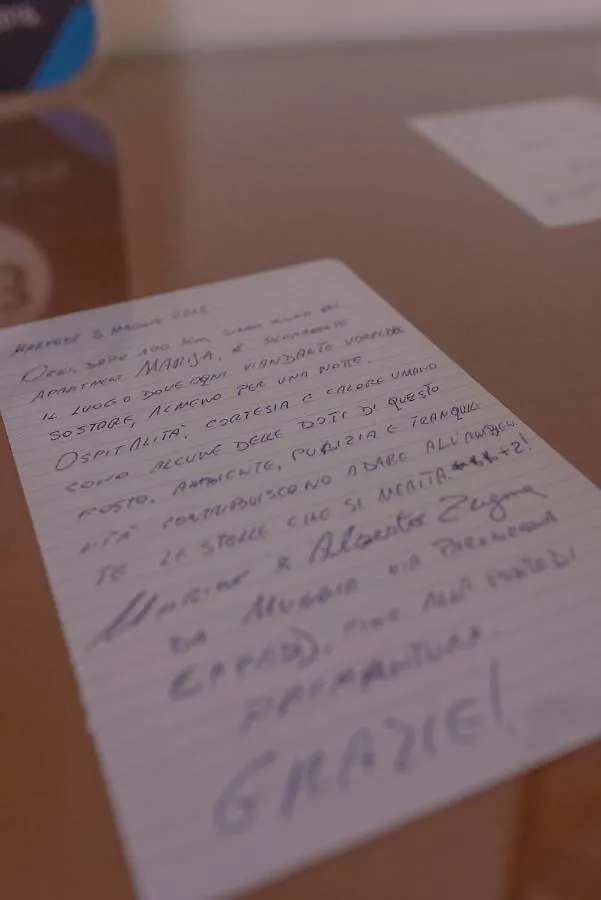 2018
3
MARTEDÌ 8 MAGGIO 2018
OGGI, DOPO 100 KM, SIAMO
APARTMENT MARIJA, E SICURAMENTE
IL LUOGO DOVE OGNI VIANDANTE VORREBBE
SOSTARE, ALMENO PER UNA NOTTE.
OSPITALITÀ, CORTESIA E CALORE UMANO
SONO ALCUNE DELLE DOTI DI QUESTO
POSTO. AMBIENTE, PULIZIA E TRANQUIL
LITÀ CONTRIBUISCONO A DARE ALL'AMBIEN
TE LE STELLE CHE SI MERITA. +2!
MARINO & Alberto
DA MUGGIA VIA PARENZANA
(A PIEDI), FINO ALLA PUNTA DI
PREMANTURA.
GRAZIE!